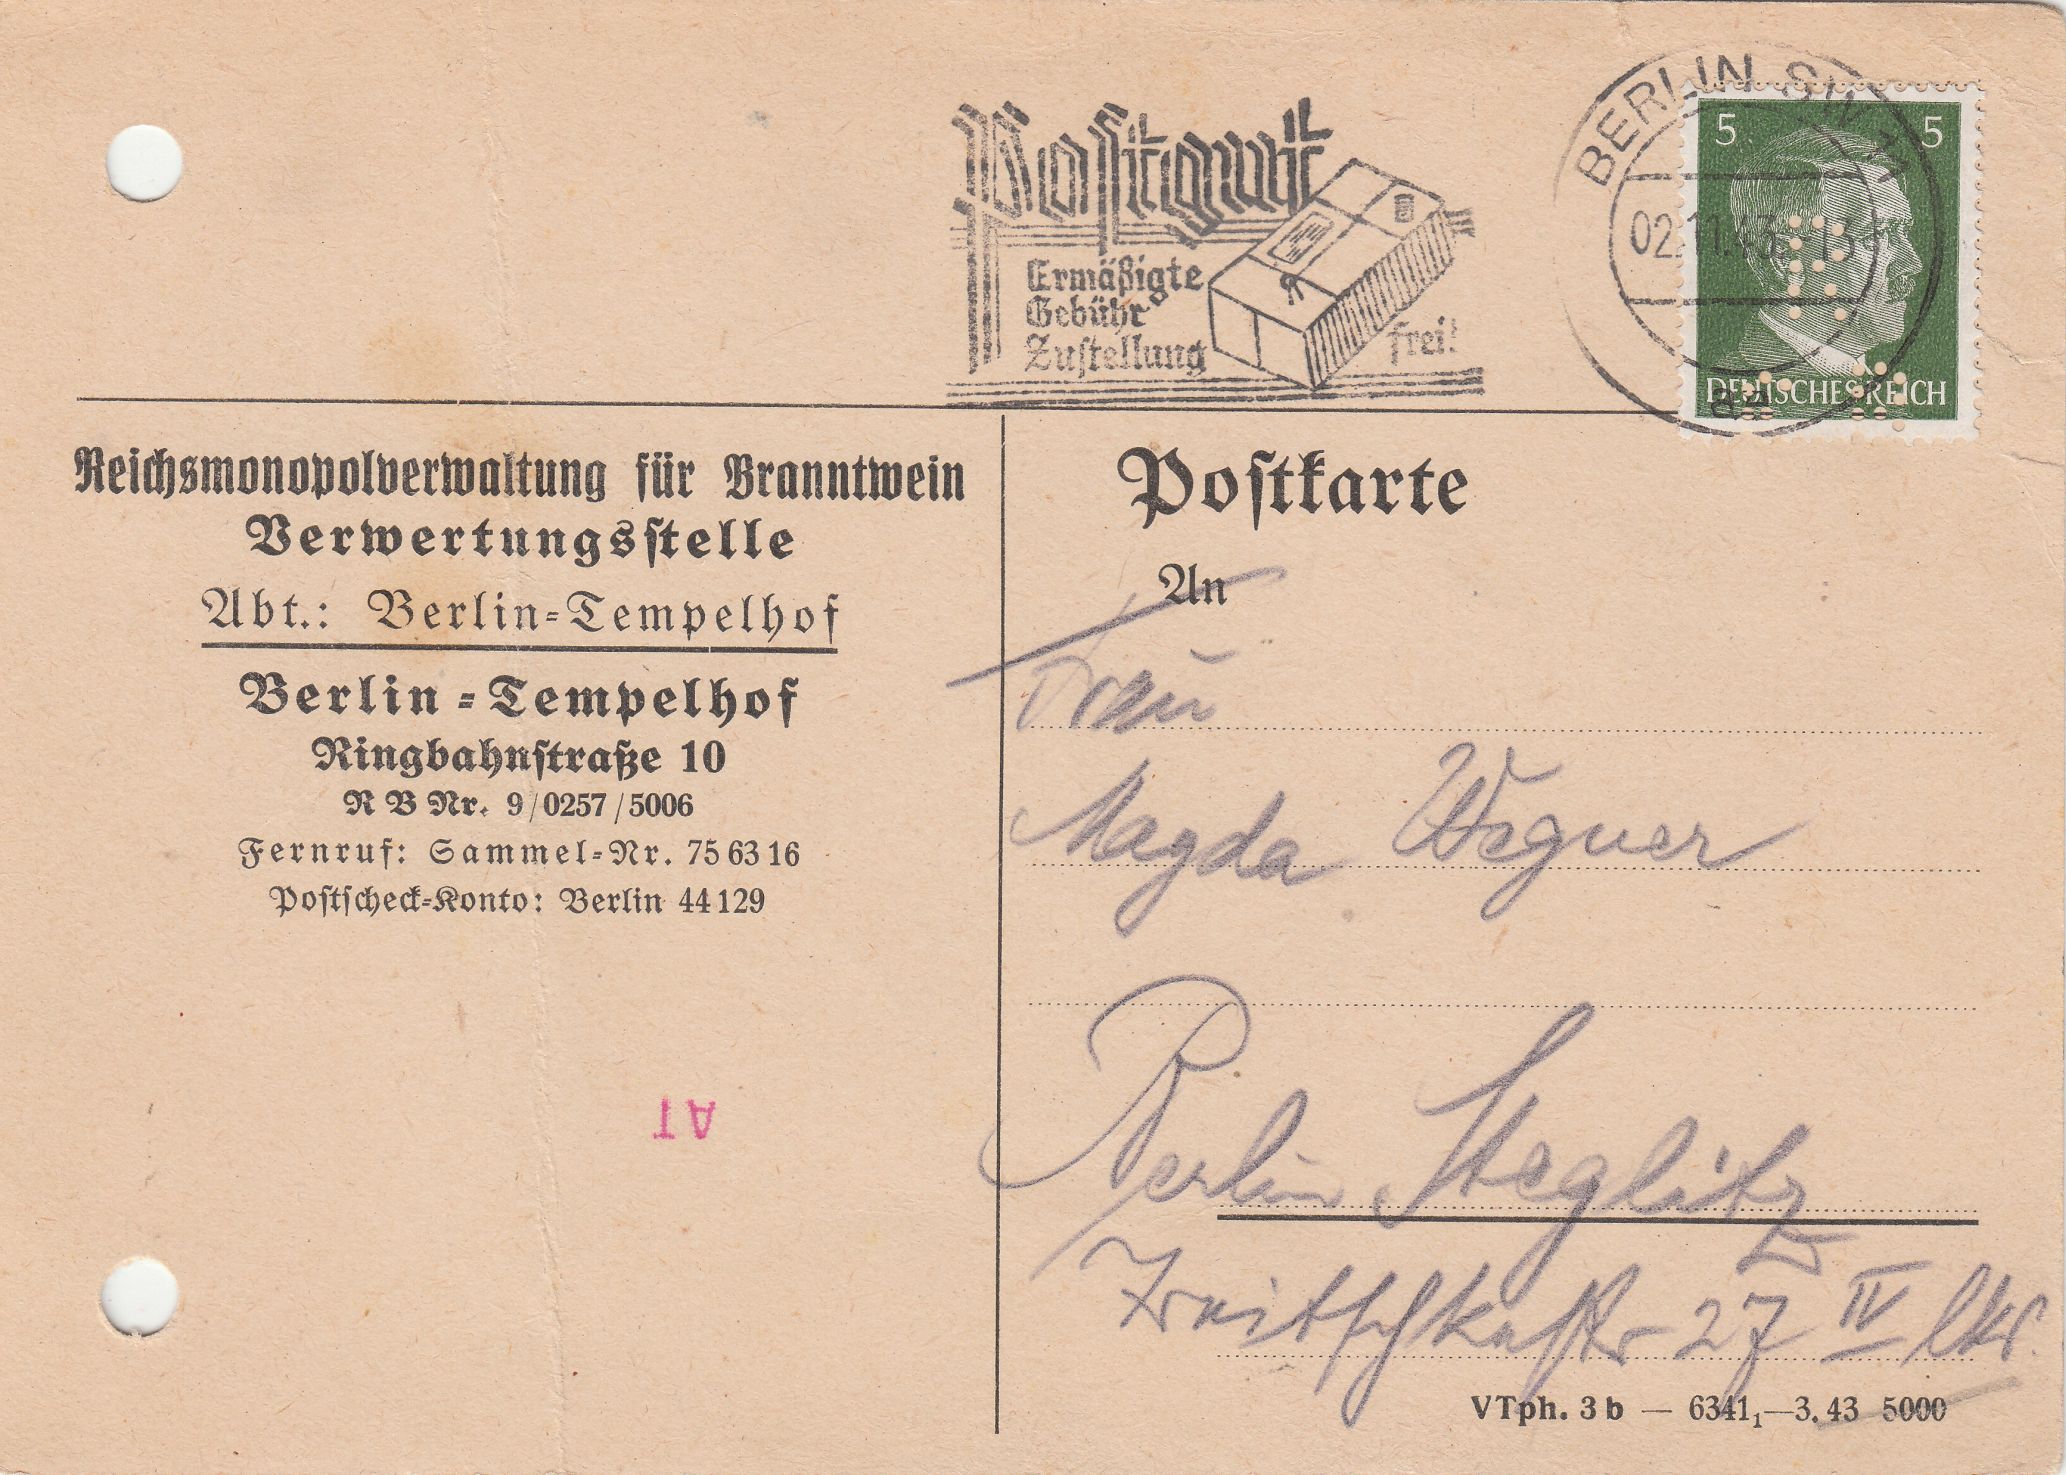 Postgut
Ermäßigte
Gebühr
Zustellung frei!
BERLIN SW 11
02.11.43.-13
5 5
DEUTSCHES REICH
Reichsmonopolverwaltung für Branntwein
Verwertungsstelle
Abt.: Berlin-Tempelhof
Berlin-Tempelhof
Ringbahnstraße 10
R B Nr. 9/0257/5006
Fernruf: Sammel-Nr. 75 63 16
Postscheck-Konto: Berlin 44 129
AT
Postkarte
An
Frau
Magda Wegner
Berlin Steglitz
27 IV lks.
VTph. 3 b — 6341₁—3. 43 5000